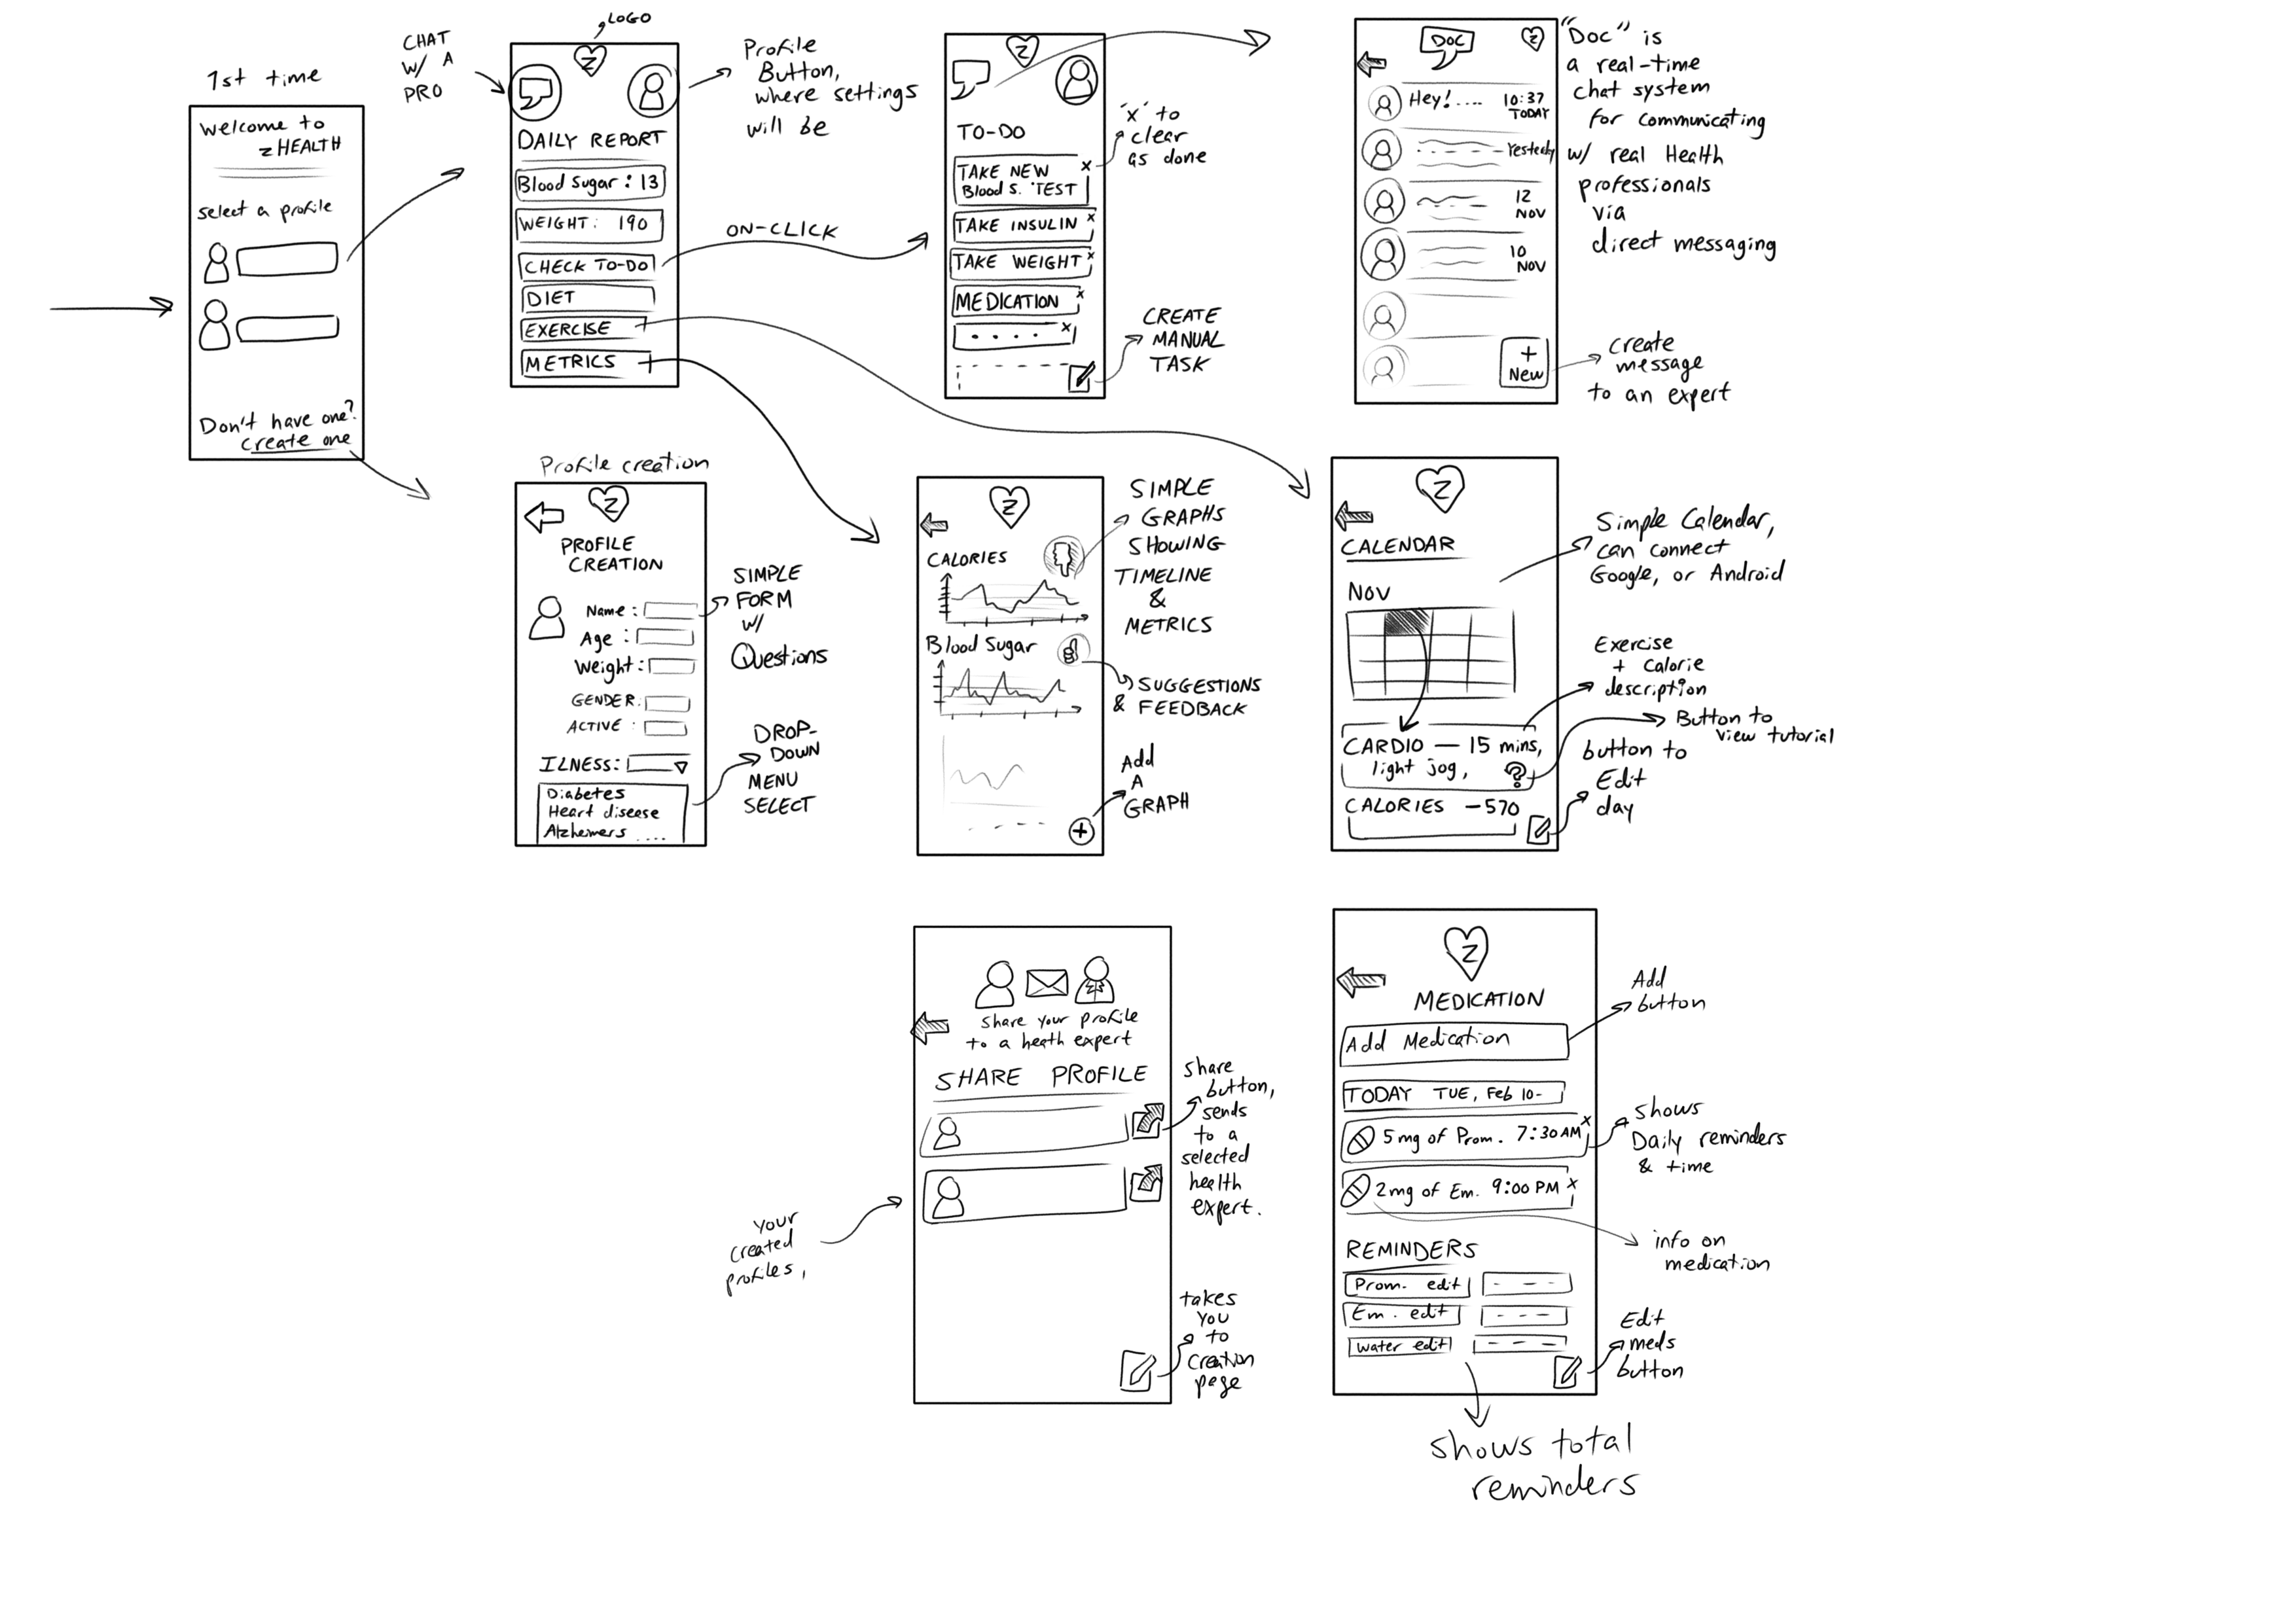 1st time
Welcome to
zHEALTH
select a profile
Don't have one?
create one
CHAT
W/ A
PRO
LOGO
Z
DAILY REPORT
Blood Sugar : 13
WEIGHT: 190
CHECK TO-DO
DIET
EXERCISE
METRICS
Profile
Button,
where settings
will be
ON-CLICK
Z
TO-DO
TAKE NEW x
Blood S. TEST
TAKE INSULIN x
TAKE WEIGHT x
MEDICATION x
. . . . x
"x" to
clear
as done
CREATE
MANUAL
TASK
DOC
Z
Hey!.... 10:37
TODAY
Yesterdy
12
NOV
10
NOV
+
New
"Doc" is
a real-time
chat system
for communicating
w/ real Health
professionals
via
direct messaging
create
message
to an expert
Profile creation
Z
PROFILE
CREATION
Name :
Age :
Weight :
GENDER:
ACTIVE :
ILNESS:
Diabetes
Heart disease
Alzheimers ....
SIMPLE
FORM
w/
Questions
DROP-
DOWN
MENU
SELECT
Z
CALORIES
Blood Sugar
+
SIMPLE
GRAPHS
SHOWING
TIMELINE
&
METRICS
SUGGESTIONS
& FEEDBACK
Add
A
GRAPH
Z
CALENDAR
NOV
CARDIO — 15 mins,
light jog, ?
CALORIES -570
Simple Calendar,
can connect
Google, or Android
Exercise
+ calorie
description
Button to
view tutorial
button to
Edit
day
share your profile
to a heath expert
SHARE PROFILE
share
button,
sends
to a
selected
health
expert.
your
created
profiles,
takes
you
to
creation
page
Z
MEDICATION
Add Medication
TODAY TUE, Feb 10-
5mg of Prom. 7:30 AM x
2mg of Em. 9:00 PM x
REMINDERS
Prom. edit - - -
Em. edit - - -
water edit - - -
Add
button
shows
Daily reminders
& time
info on
medication
Edit
meds
button
shows total
reminders